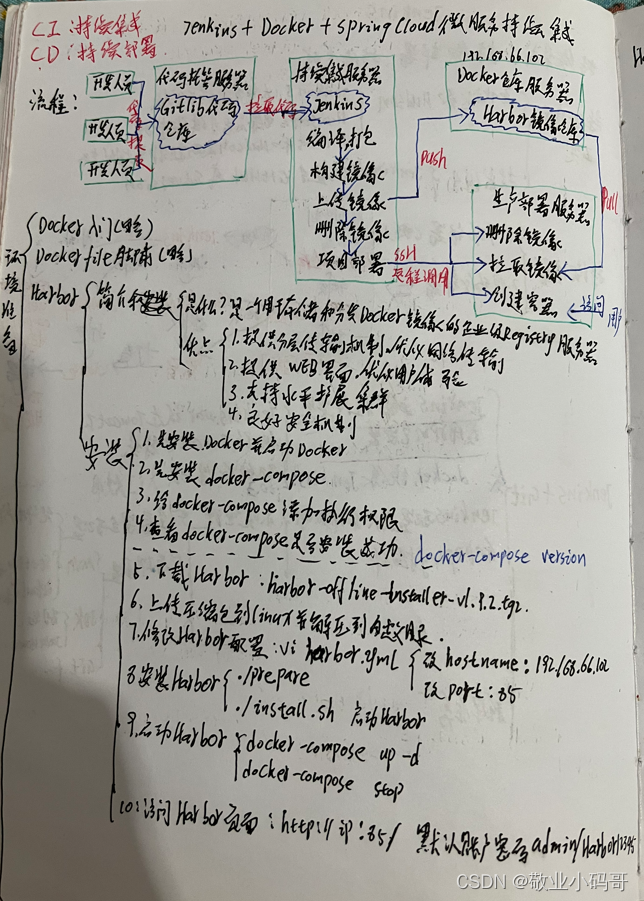 CI:持续集成
Jenkins+Docker+springCloud微服务持续集成
CD:持续部署
192.168.66.102
流程:
开发人员
代码托管服务器
持续集成服务器
Docker仓库服务器
Gitlib代码
仓库
Jenkins
Harbor镜像仓库
开发人员
开发人员
代码提交
编译打包
构建镜像
push
Pull
上传镜像
生产部署服务器
删除镜像
删除镜像
SSH
项目部署
远程调用
拉取镜像
创建容器
访问
用户
环境准备
Docker入门(略)
Dockerfile脚本(略)
Harbor
简介和安装
是什么?是一个用于存储和分发Docker镜像的企业级Registry服务器
优点
1.提供分层传输机制,优化网络传输
2.提供WEB界面,优化用户体验
3.支持水平扩展集群
4.良好安全机制
安装
1.先安装Docker并启动Docker
2.先安装docker-compose
3.给docker-compose添加执行权限
4.查看docker-compose是否安装成功. docker-compose version
5.下载Harbor:harbor-offline-installer-v1.9.2.tgz.
6.上传压缩包到linux并解压到
7.修改Harbor配置:vi harbor.yml
改hostname:192.168.66.102
改port:85
8.安装Harbor
./prepare
./install.sh 启动Harbor
9.启动Harbor
docker-compose up -d
docker-compose stop
10:访问Harbor页面:http://ip:85/ 默认账户密码admin/Harbor12345
CSDN @敬业小码哥